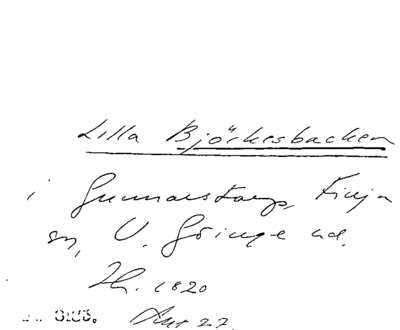 Lilla Björkesbacken
i Gunnarstorp, Finja
sn, V. Göinge hd.
1820
27.